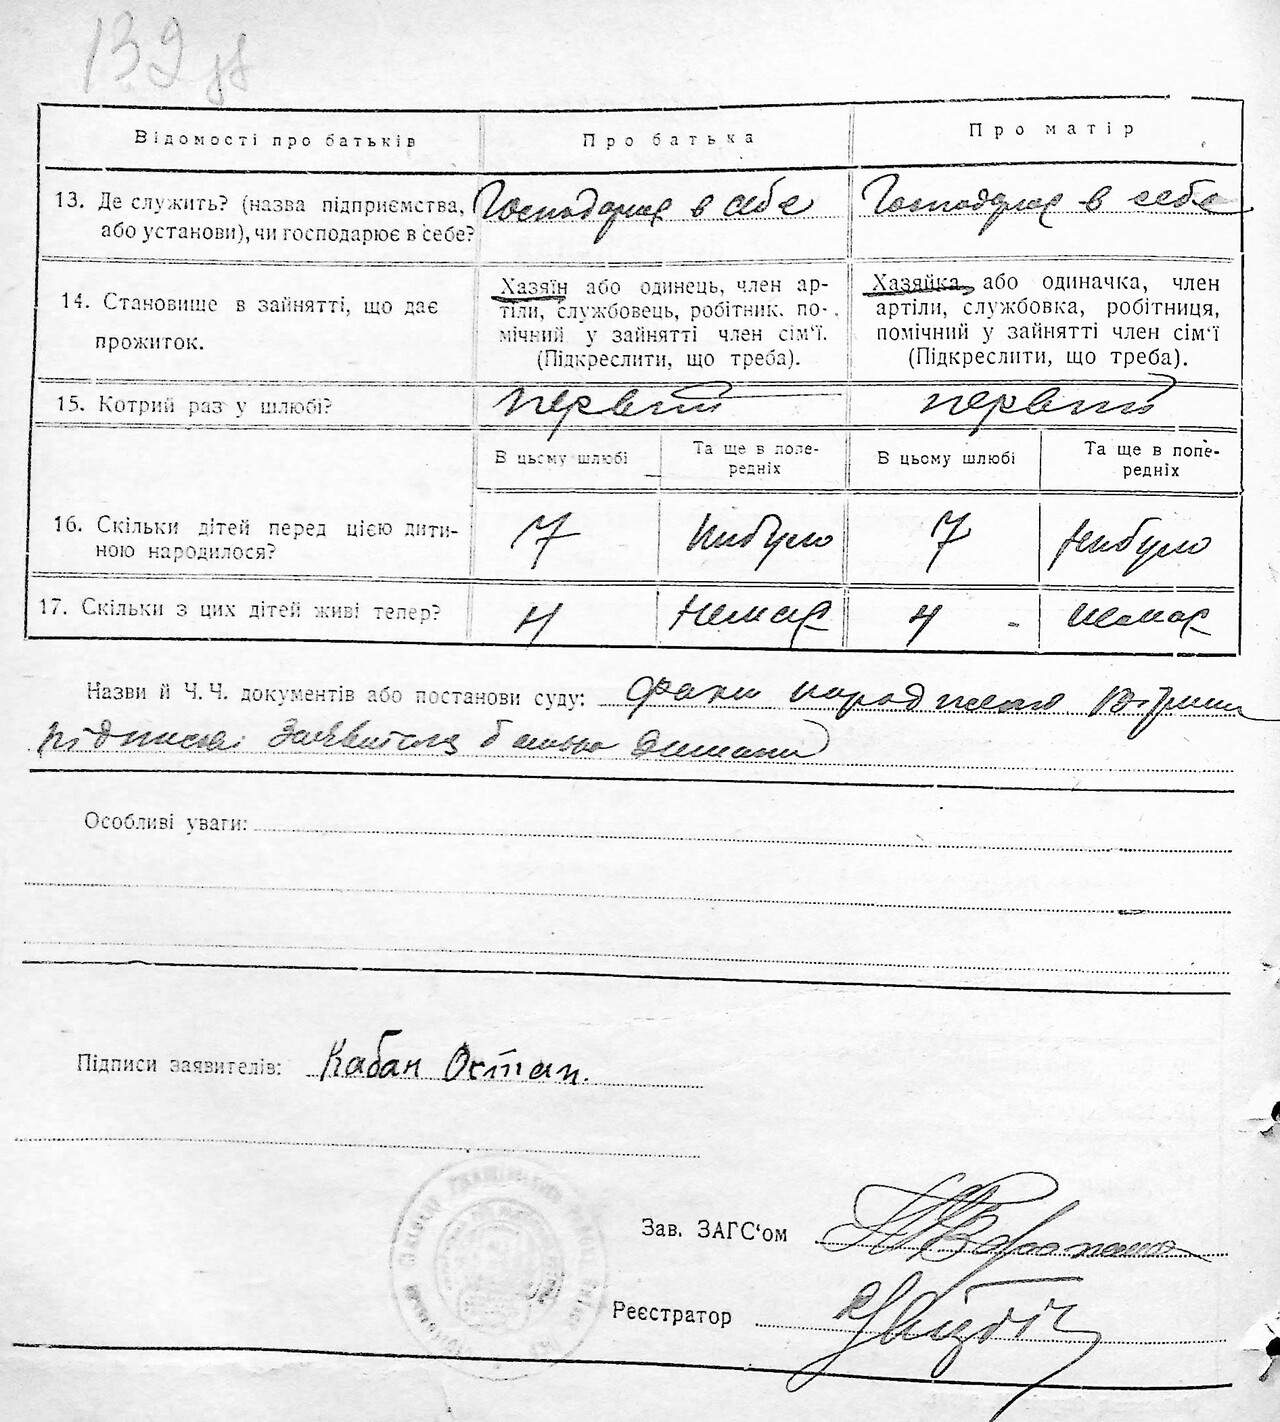 139
Відомості про батьків
Про батька
Про матір
13. Де служить? (назва підприємства, або установи), чи господарює в себе?
Господарює в себе
Господарює в себе
14. Становище в зайнятті, що дає прожиток.
Хазяїн або одинець, член ар-
тіли, службовець, робітник. по-
мічний у зайнятті член сім'ї.
(Підкреслити, що треба).
Хазяйка або одиначка, член
артіли, службовка, робітниця,
помічний у зайнятті член сім'ї
(Підкреслити, що треба).
15. Котрий раз у шлюбі?
первий
первий
В цьому шлюбі
Та ще в попе-
редніх
В цьому шлюбі
Та ще в попе-
редніх
16. Скільки дітей перед цією дити-
ною народилося?
7
Нибуло
7
Нибуло
17. Скільки з цих дітей живі тепер?
4
Немає
4
Немає
Назви й Ч. Ч. документів або постанови суду:
Особливі уваги:
Підписи заявителів: Кабан Остап.
Зав. ЗАГС'ом
Реєстратор